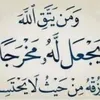 وَمَن يَتَّقِ اللَّهَ
يَجْعَل لَّهُ مَخْرَجًا
زُقْهُ مِنْ حَيْثُ لَا يَحْتَسِ